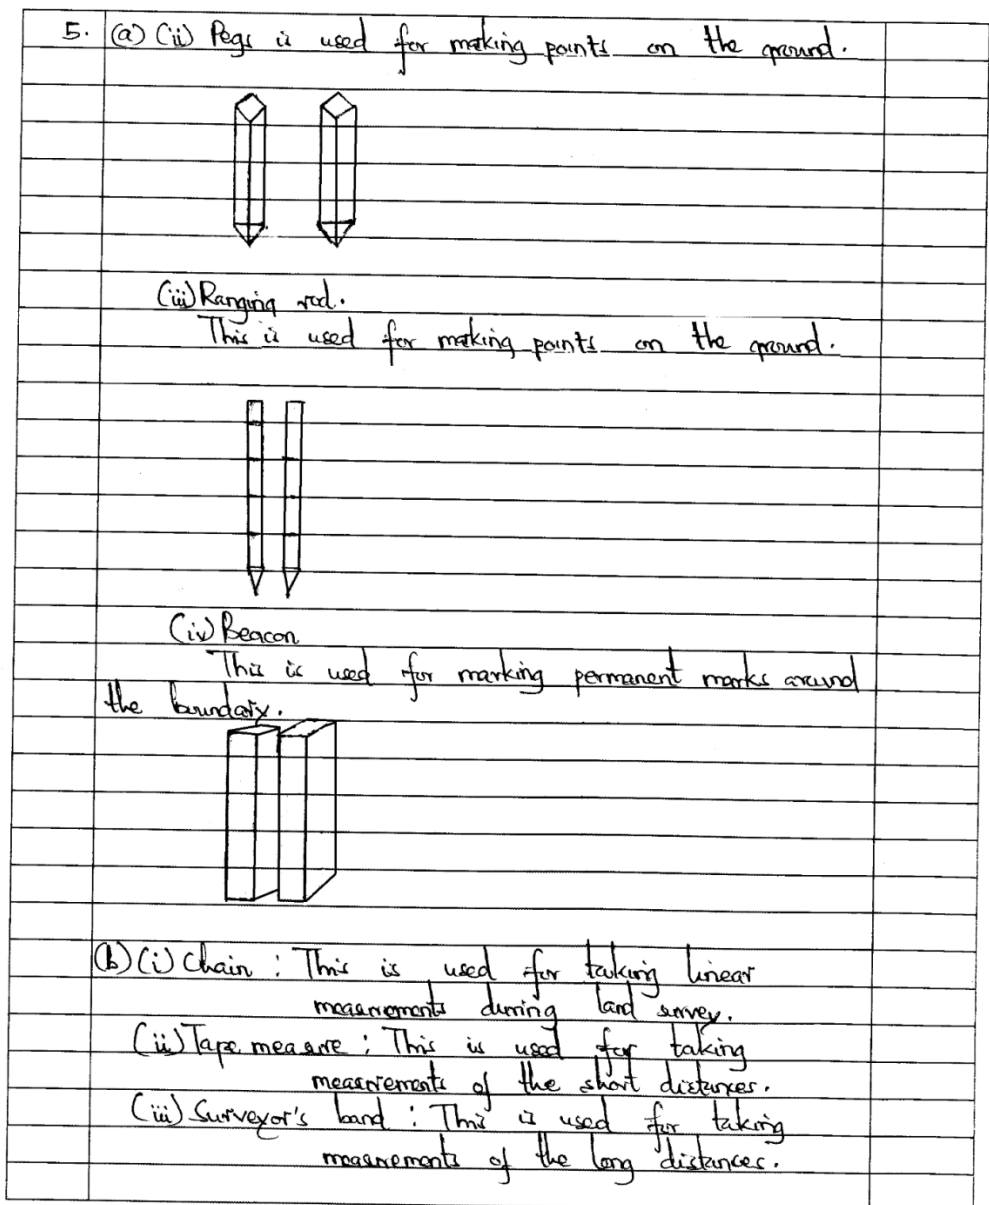 5. (a) (ii) Pegs is used for making points on the ground.
(iii) Ranging rod.
This is used for making points on the ground.
(iv) Beacon
This is used for marking permanent marks around
the boundary.
(b) (i) Chain : This is used for taking linear
measurements during land survey.
(ii) Tape measure : This is used for taking
measurements of the short distances.
(iii) Surveyor's band : This is used for taking
measurements of the long distances.